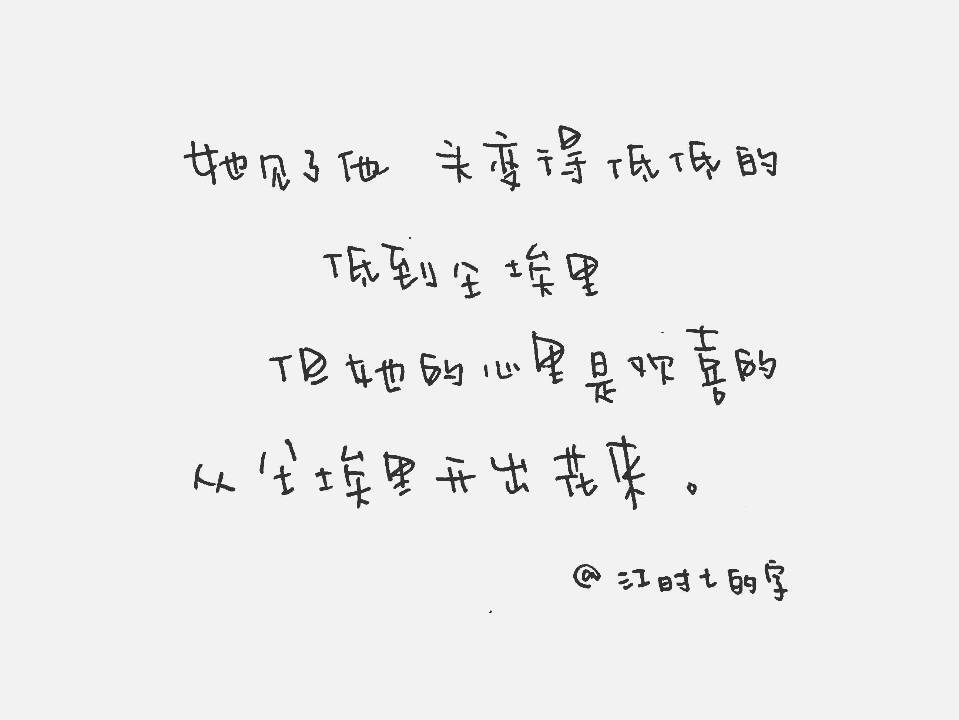 她见了他 头变得低低的
低到尘埃里
但她的心里是欢喜的
从尘埃里开出花来。
@江时七的字